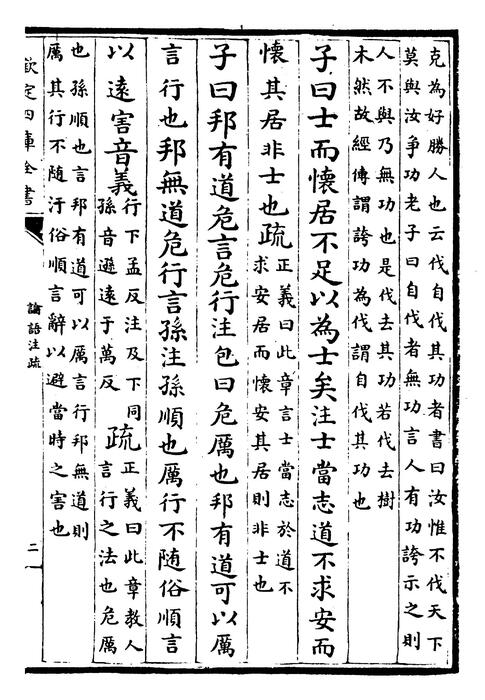 克為好勝人也云伐自伐其功者書曰汝惟不伐天下
莫與汝爭功老子曰自伐者無功言人有功誇示之則
人不與乃無功也是伐去其功若伐去樹
木然故經傳謂誇功為伐謂自伐其功也
子曰士而懷居不足以為士矣注士當志道不求安而
懷其居非士也疏
正義曰此章言士當志於道不
求安居而懷安其居則非士也
子曰邦有道危言危行注包曰危厲也邦有道可以厲
言行也邦無道危行言孫注孫順也厲行不随俗順言
以遠害音義
行下孟反注及下同
孫音遜遠于萬反
疏
正義曰此章教人
言行之法也危厲
也孫順也言邦有道可以厲言行邦無道則
厲其行不随汙俗順言辭以避當時之害也
欽定四庫全書
論語注疏
二